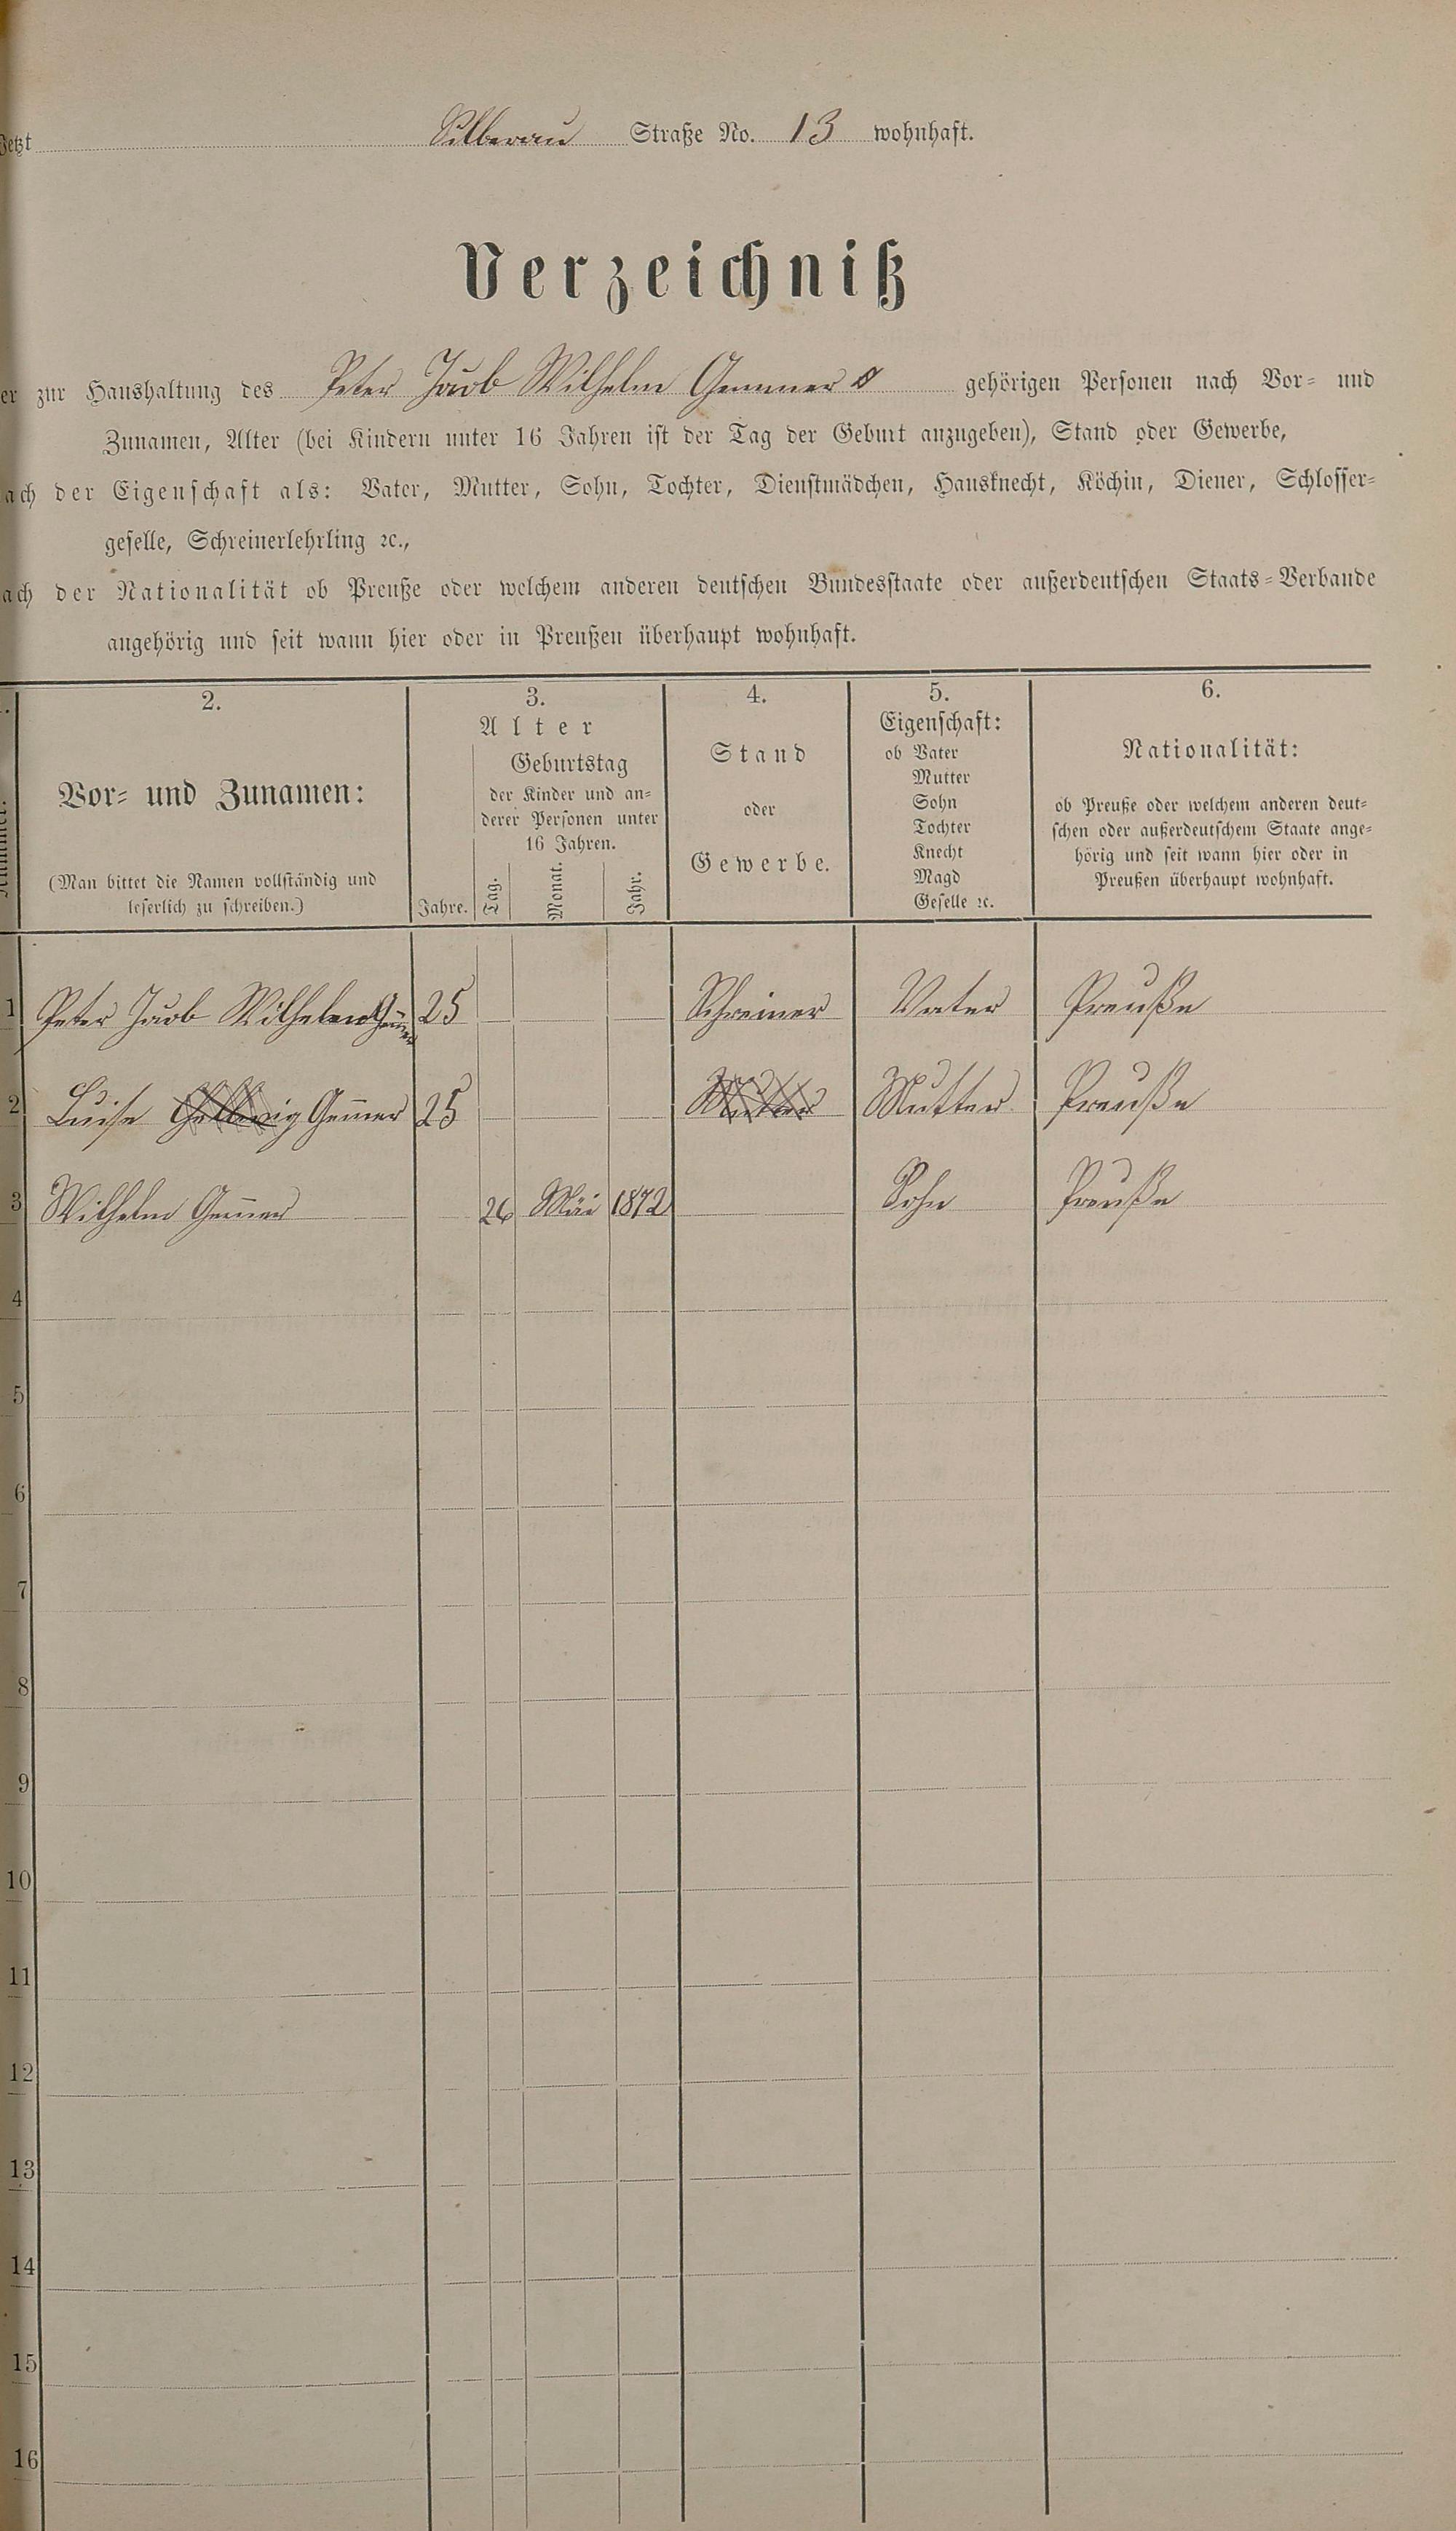 Jetzt Silberau Straße No. 13 wohnhaft.
Verzeichniß
er zur Haushaltung des Peter Jacob Wilhelm Gemmer gehörigen Personen nach Vor- und
Zunamen, Alter (bei Kindern unter 16 Jahren ist der Tag der Geburt anzugeben), Stand oder Gewerbe,
ach der Eigenschaft als: Vater, Mutter, Sohn, Tochter, Dienstmädchen, Hausknecht, Köchin, Diener, Schlosser-
geselle, Schreinerlehrling ꝛc.,
ach der Nationalität ob Preuße oder welchem anderen deutschen Bundesstaate oder außerdeutschen Staats-Verbande
angehörig und seit wann hier oder in Preußen überhaupt wohnhaft.
2. 3. 4. 5. 6.
Vor- und Zunamen:
(Man bittet die Namen vollständig und
leserlich zu schreiben.)
Alter
Geburtstag
der Kinder und an-
derer Personen unter
16 Jahren.
Jahre. Tag. Monat. Jahr.
Stand
oder
Gewerbe.
Eigenschaft:
ob Vater
Mutter
Sohn
Tochter
Knecht
Magd
Geselle ꝛc.
Nationalität:
ob Preuße oder welchem anderen deut-
schen oder außerdeutschem Staate ange-
hörig und seit wann hier oder in
Preußen überhaupt wohnhaft.
1 Peter Jacob Wilhelm Gem̄er 25 Schreiner Vater Preuße
2 Luise Gem̄er 25 Mutter Mutter Preuße
3 Wilhelm Gem̄er 26 Mai 1872 Sohn Preuße
4
5
6
7
8
9
10
11
12
13
14
15
16